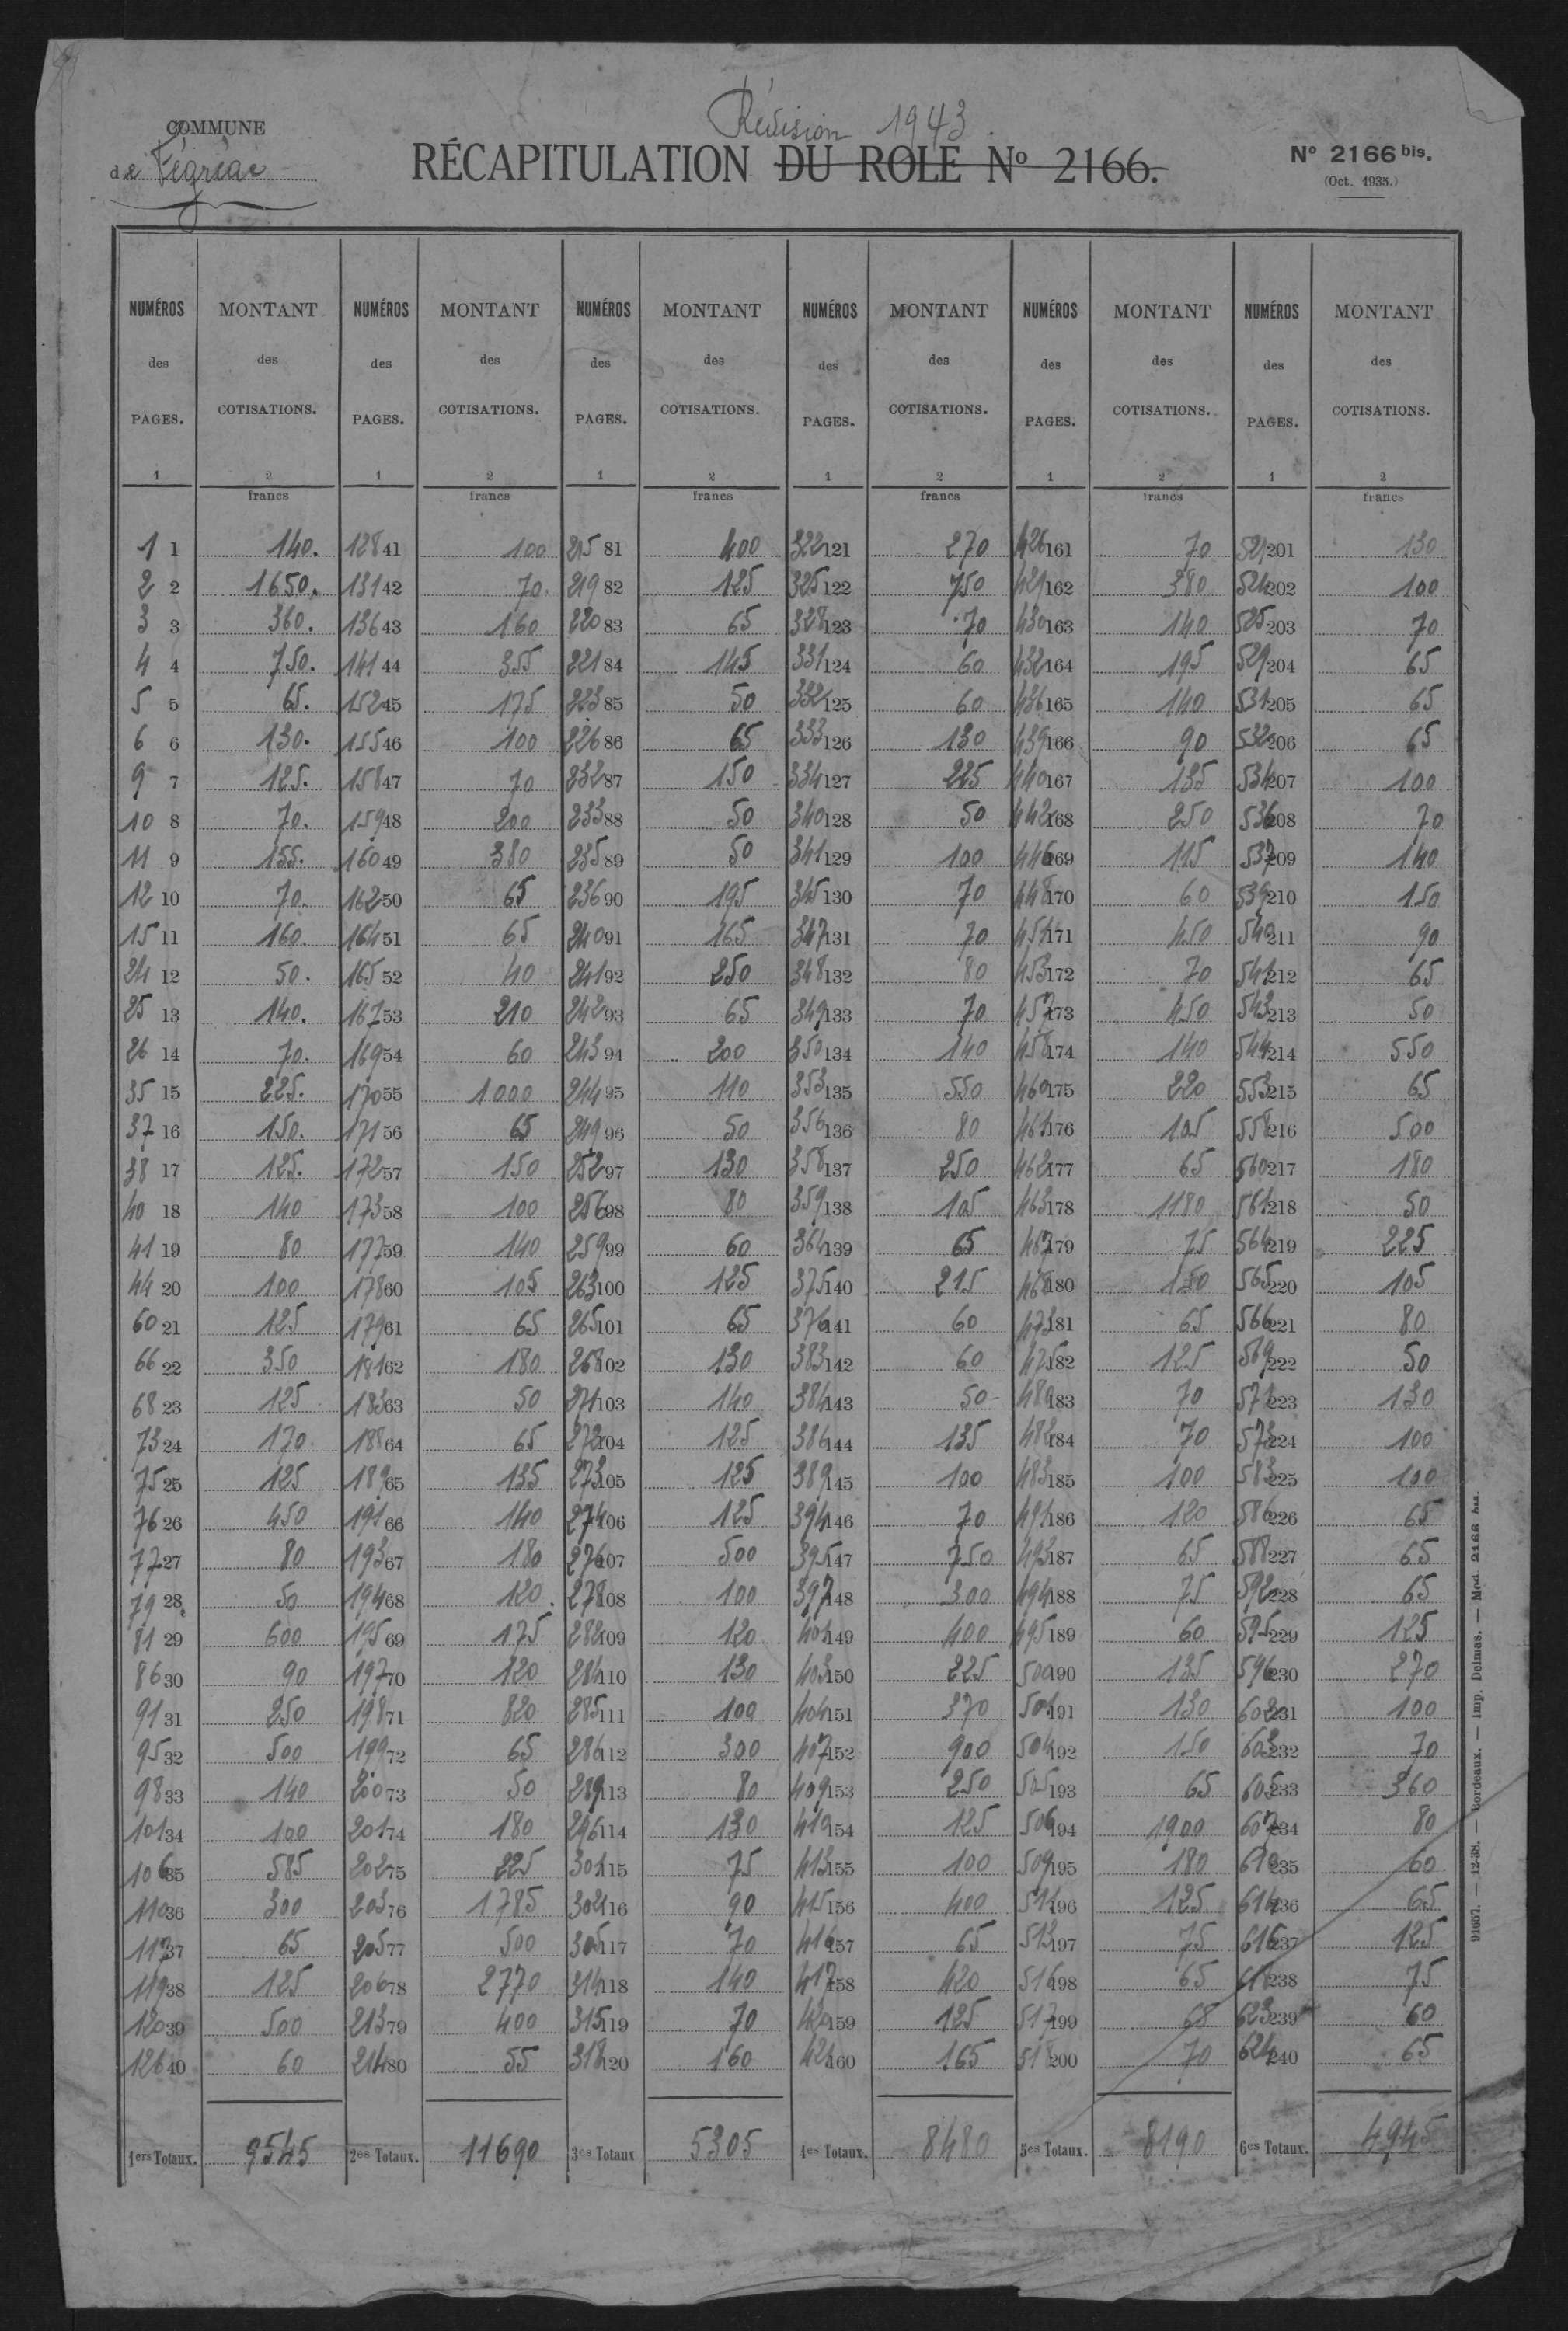 COMMUNE
de Fégréac
Révision 1943.
RÉCAPITULATION DU ROLE No 2166.
No 2166 bis.
(Oct. 1935.)
NUMÉROS des PAGES. MONTANT des COTISATIONS. NUMÉROS des PAGES. MONTANT des COTISATIONS. NUMÉROS des PAGES. MONTANT des COTISATIONS. NUMÉROS des PAGES. MONTANT des COTISATIONS. NUMÉROS des PAGES. MONTANT des COTISATIONS. NUMÉROS des PAGES. MONTANT des COTISATIONS.
1 2 1 2 1 2 1 2 1 2 1 2
francs francs francs francs francs francs
1 1 140. 128 41 100 215 81 400 322 121 270 426 161 70 521 201 130
2 2 1650. 131 42 70. 219 82 125 325 122 750 162 380 524 202 100
3 3 360. 136 43 160 220 83 65 328 123 70 430 163 140 525 203 70
4 4 750. 141 44 355 221 84 145 331 124 60 432 164 195 529 204 65
5 5 65. 152 45 175 223 85 50 332 125 60 436 165 140 531 205 65
6 6 130. 155 46 100 226 86 65 333 126 130 439 166 90 532 206 65
9 7 125. 158 47 70 232 87 150 334 127 225 440 167 135 534 207 100
10 8 70. 159 48 200 233 88 50 340 128 50 442 168 250 536 208 70
11 9 155. 160 49 380 235 89 50 341 129 100 446 169 115 537 209 140
12 10 70. 162 50 65 236 90 195 345 130 70 448 170 60 539 210 150
15 11 160. 164 51 65 240 91 165 347 131 70 171 450 540 211 90
24 12 50. 165 52 40 241 92 250 348 132 80 453 172 70 541 212 65
25 13 140. 167 53 210 242 93 65 349 133 70 457 173 450 543 213 50
26 14 70. 169 54 60 243 94 200 350 134 140 458 174 140 544 214 550
35 15 225. 170 55 1000 244 95 110 353 135 550 460 175 220 553 215 65
37 16 150. 171 56 65 249 96 50 356 136 80 461 176 105 558 216 500
38 17 125. 172 57 150 252 97 130 358 137 250 462 177 65 560 217 180
40 18 140 173 58 100 256 98 80 359 138 105 463 178 1180 561 218 50
41 19 80 177 59 140 259 99 60 364 139 65 467 179 75 564 219 225
44 20 100 178 60 105 263 100 125 375 140 215 468 180 565 220 105
60 21 125 179 61 65 265 101 65 376 141 60 473 181 65 566 221 80
66 22 350 181 62 180 268 102 130 383 142 60 475 182 125 569 222 50
68 23 125 183 63 50 271 103 140 384 143 50 480 183 70 571 223 130
73 24 170 188 64 65 272 104 125 386 144 135 184 70 573 224 100
75 25 125 189 65 135 273 105 125 389 145 100 483 185 100 583 225 100
76 26 450 191 66 140 274 106 125 394 146 70 491 186 120 586 226 65
77 27 80 193 67 180 276 107 500 395 147 750 493 187 65 588 227 65
79 28 50 194 68 120. 278 108 100 397 148 300 494 188 75 592 228 65
81 29 600 195 69 175 282 109 120 401 149 400 495 189 60 595 229 125
86 30 90 197 70 120 284 110 130 403 150 225 500 190 135 596 230 270
91 31 250 198 71 820 285 111 100 404 151 370 191 130 602 231 100
95 32 500 199 72 65 286 112 300 407 152 900 504 192 150 603 232 70
98 33 140 200 73 50 289 113 80 409 153 250 505 193 65 605 233 360
101 34 100 201 74 180 296 114 130 410 154 125 506 194 1900 607 234 80
106 35 585 202 75 225 301 115 75 413 155 100 509 195 180 610 235 60
110 36 300 203 76 1785 302 116 90 415 156 400 511 196 125 614 236 65
117 37 65 205 77 500 305 117 70 416 157 65 513 197 75 616 237 125
119 38 125 206 78 2770 314 118 140 417 158 420 516 198 65 618 238 75
120 39 500 213 79 400 315 119 70 420 159 125 517 199 68 623 239 60
126 40 60 214 80 55 318 120 160 424 160 165 518 200 70 624 240 65
1ers Totaux. 9545 2es Totaux. 11690 3es Totaux 5305 4es Totaux. 8480 5es Totaux. 8190 6es Totaux. 4945
91657. — 12-38. — Bordeaux. — Imp. Delmas. — Mod. 2166 bis.